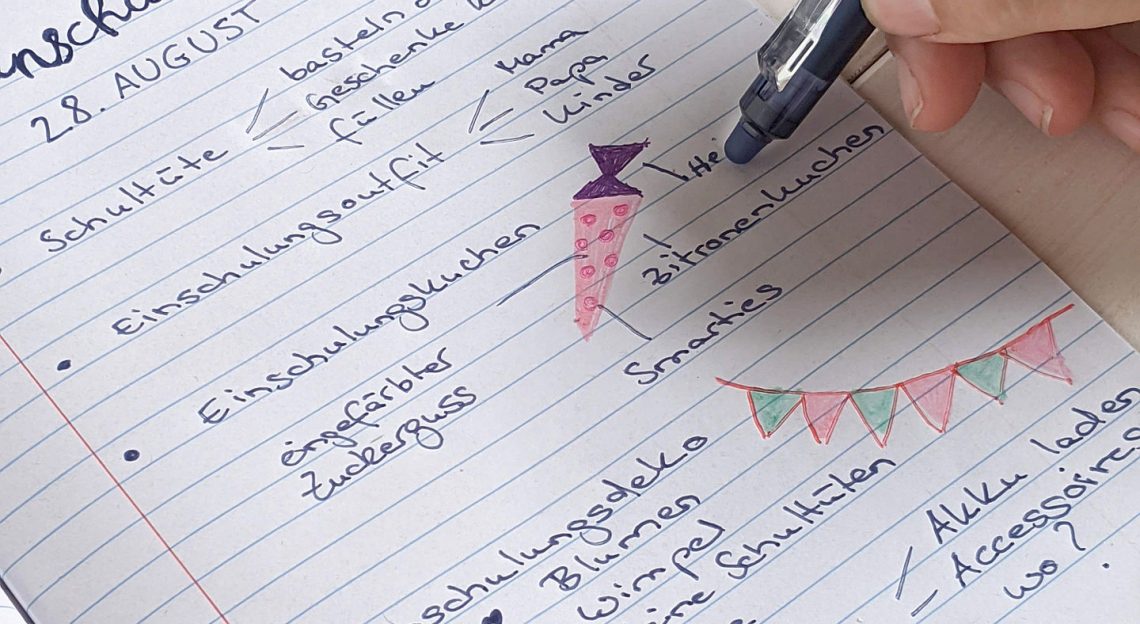 28. AUGUST
Schultüte
basteln
Geschenke
füllen
Einschulungsoutfit
Mama
Papa
Kinder
Einschulungskuchen
eingefärbter
Zuckerguss
Zitronenkuchen
Smarties
schulungsdeko
Blumen
Wimpel
ine Schultüten
Akku laden
Accessoires
wo?